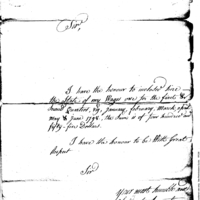 Sir,
I have the honour to inclose here
the State of my Wages due for the first &
Second Quarters, vz, january, february, March, april
may & june 1798. the Sum is of four hundred and
fifty-four Dollars.
I have the honour to be With Great
Respect
Sir
Your most humble and